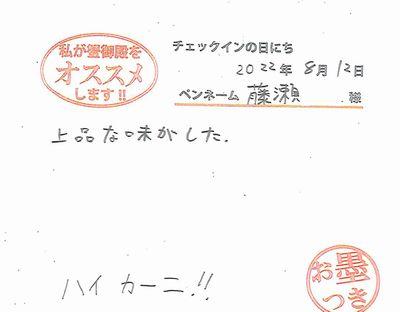 私が蟹御殿を
オススメ
します!!
チェックインの日にち
2022年8月12日
ペンネーム 藤瀬 様
上品な味がした.
ハイ カーニ!!
お墨
つき